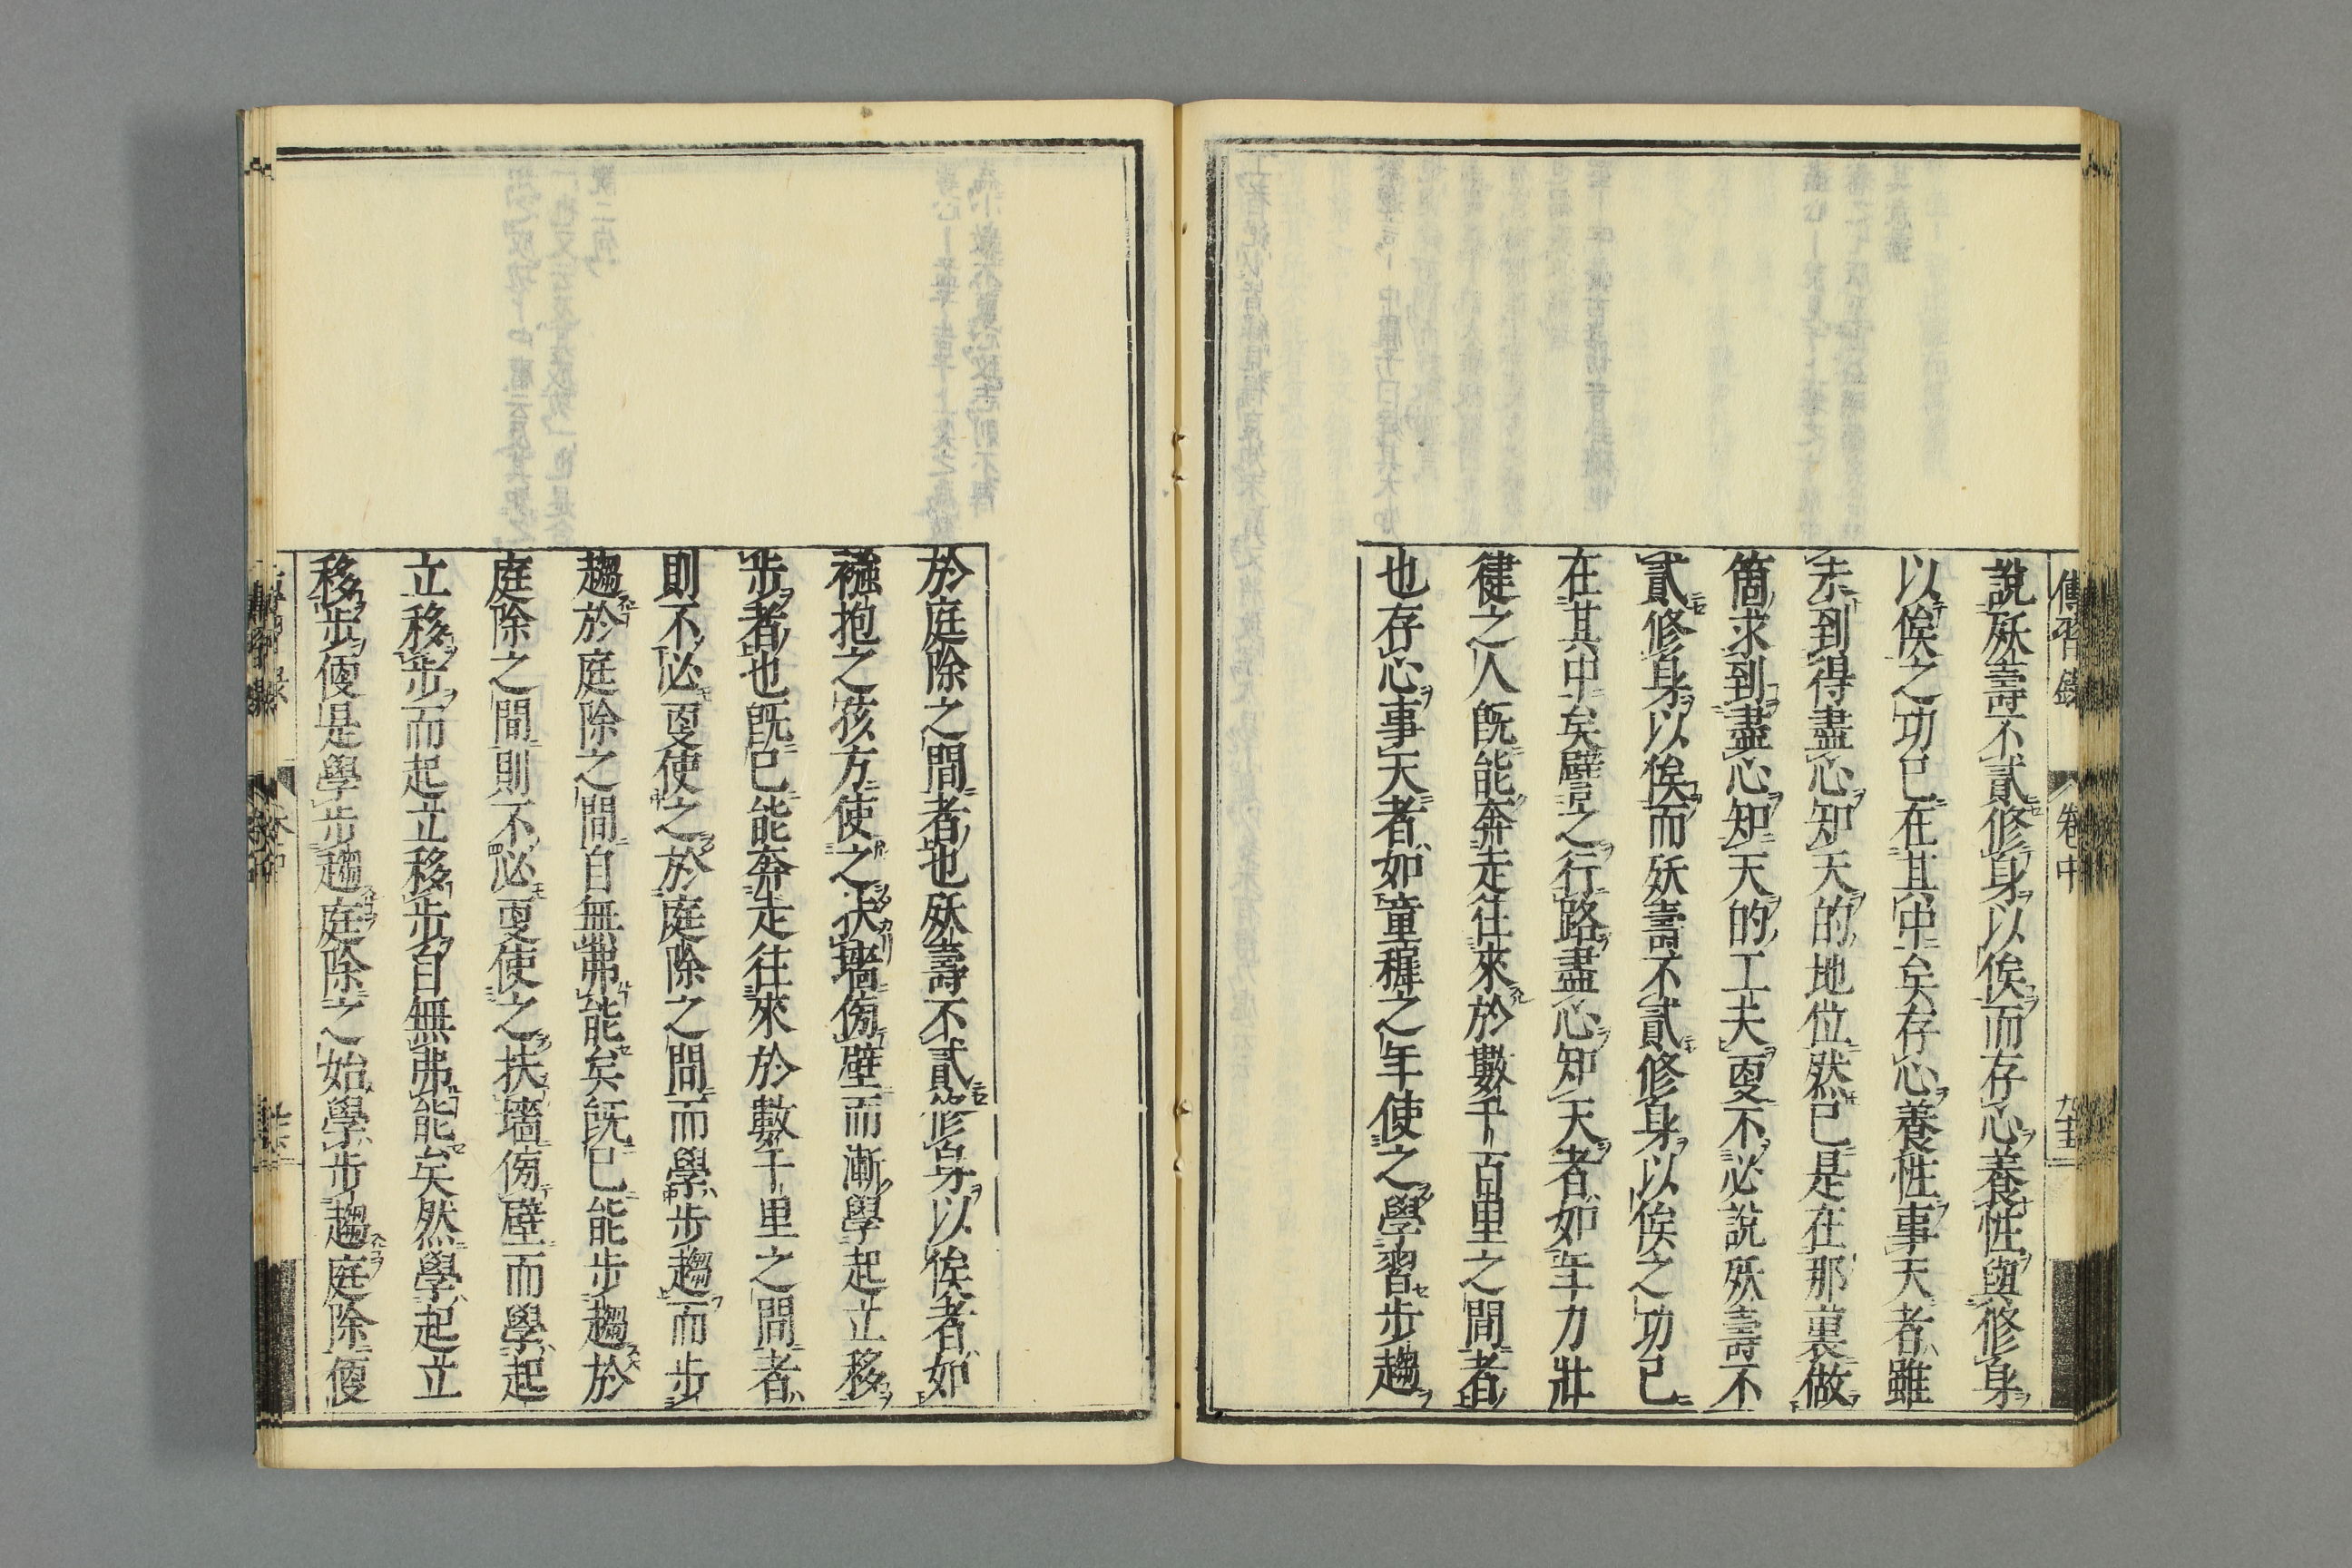 傳習錄 卷中
說殀壽不貳修身以俟而存心養性與修身
以俟之功已在其中矣存心養性事天者雖
未到得盡心知天的地位然已是在那裏做
箇求到盡心知天的工夫更不必說殀壽不
貳修身以俟而殀壽不貳修身以俟之功已
在其中矣譬之行路盡心知天者如年力壯
健之人既能奔走往來於數千百里之間者
也存心事天者如童穉之年使之學習步趨
於庭除之間者也殀壽不貳修身以俟者如
襁抱之孩方使之扶墻傍壁而漸學起立移
步者也既已能奔走往來於數千里之間者
則不必更使之於庭除之間而學步趨而步
趨於庭除之間自無弗能矣既已能步趨於
庭除之間則不必更使之扶墻傍壁而學起
立移步而起立移步自無弗能矣然學起立
移步便是學步趨庭除之始學步趨庭除便